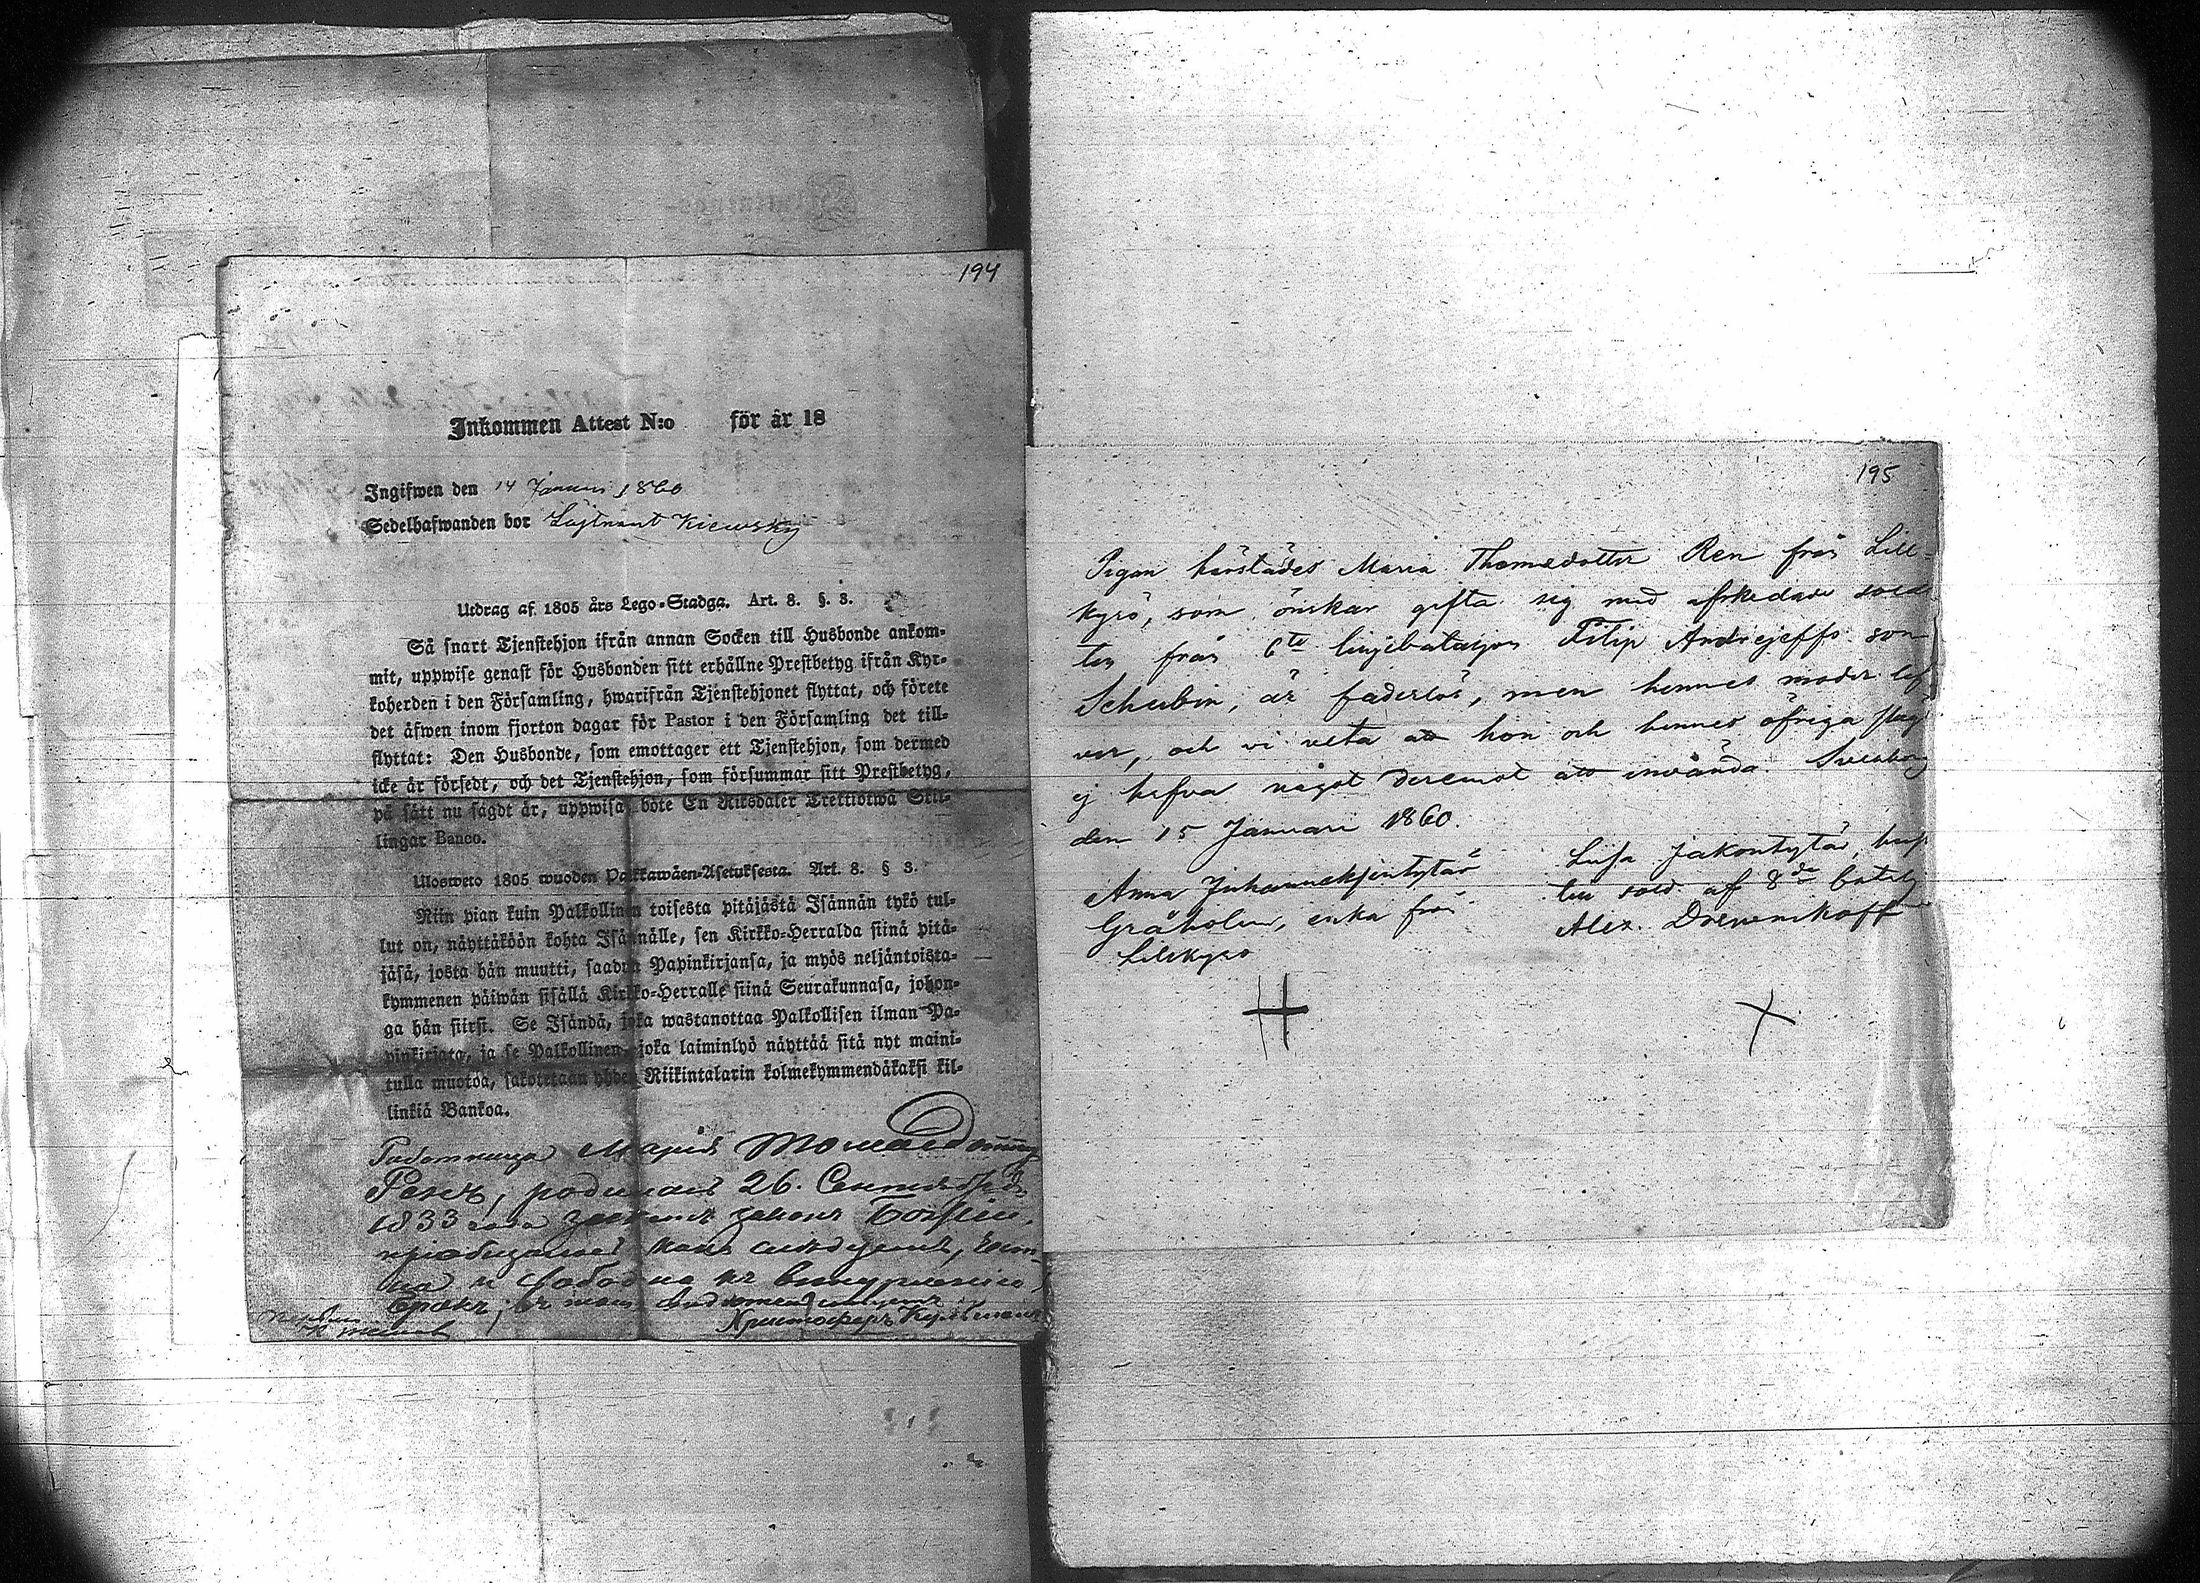 194
Inkommen Attest N:o för år 18
Ingifwen den 14 Januari 1860
Sedelhafwanden bor Löjtnant Kiewsky
Utdrag af 1805 års Lego-Stadga. Art. 8. §. 3.
Så snart Tjenstehjon ifrån annan Socken till Husbonde ankom-
mit, uppwise genast för Husbonden sitt erhållne Prestbetyg ifrån Kyr-
koherden i den Församling, hwarifrån Tjenstehjonet flyttat, och förete
det äfwen inom fjorton dagar för Pastor i den Församling det till-
flyttat: Den Husbonde, som emottager ett Tjenstehjon, som dermed
icke är försedt, och det Tjenstehjon, som försummar sitt Prestbetyg,
på sätt nu sagdt är, uppwisa, böte En Riksdaler Trettiotwå Skil-
lingar Banco.
Ulosweto 1805 wuoden Palkkawäen-Asetuksesta. Art. 8. § 3.
Niin pian kuin Palkollinen toisesta pitäjästä Isännän tykö tul-
lut on, näyttäköön kohta Isännälle, sen Kirkko-Herralda siinä pitä-
jäsä, josta hän muutti, saadun Papinkirjansa, ja myös neljäntoista-
kymmenen päiwän sisällä Kirkko-Herralle siinä Seurakunnasa, johon-
ga hän siirsi. Se Isändä, joka wastanottaa Palkollisen ilman Pa-
pinkirjata, ja se Palkollinen, joka laiminlyö näyttää sitä nyt maini-
tulla muotoa, sakotetaan yhden Riikintalarin kolmekymmendäkaksi kil-
linkiä Bankoa.
Работница Марiя Томасдоттеръ
Ренъ, родилась 26. Сентября
1833 года законъ Божiй,
прiобщалась какъ слѣдуетъ,
и свободна къ вступленiю
бракъ;
Христофоръ
195
Pigan härstädes Maria Thomædotter Ren från Lill-
kyrö, som önskar gifta sig med afskedade solda-
ten från 6te linjebataljon Filip Andrejeffs son
Schubin, är faderlös, men hennes moder lef-
ver, och vi veta att hon och hennes öfriga slägt
ej hafva något deremot att invända. Sveaborg
den 15 Januari 1860.
Anna Juhannekjentytär
Gråholm, enka från
Lillkyro
Lisa Jakontytär, hust
sold. af 8de batalj
Alex.